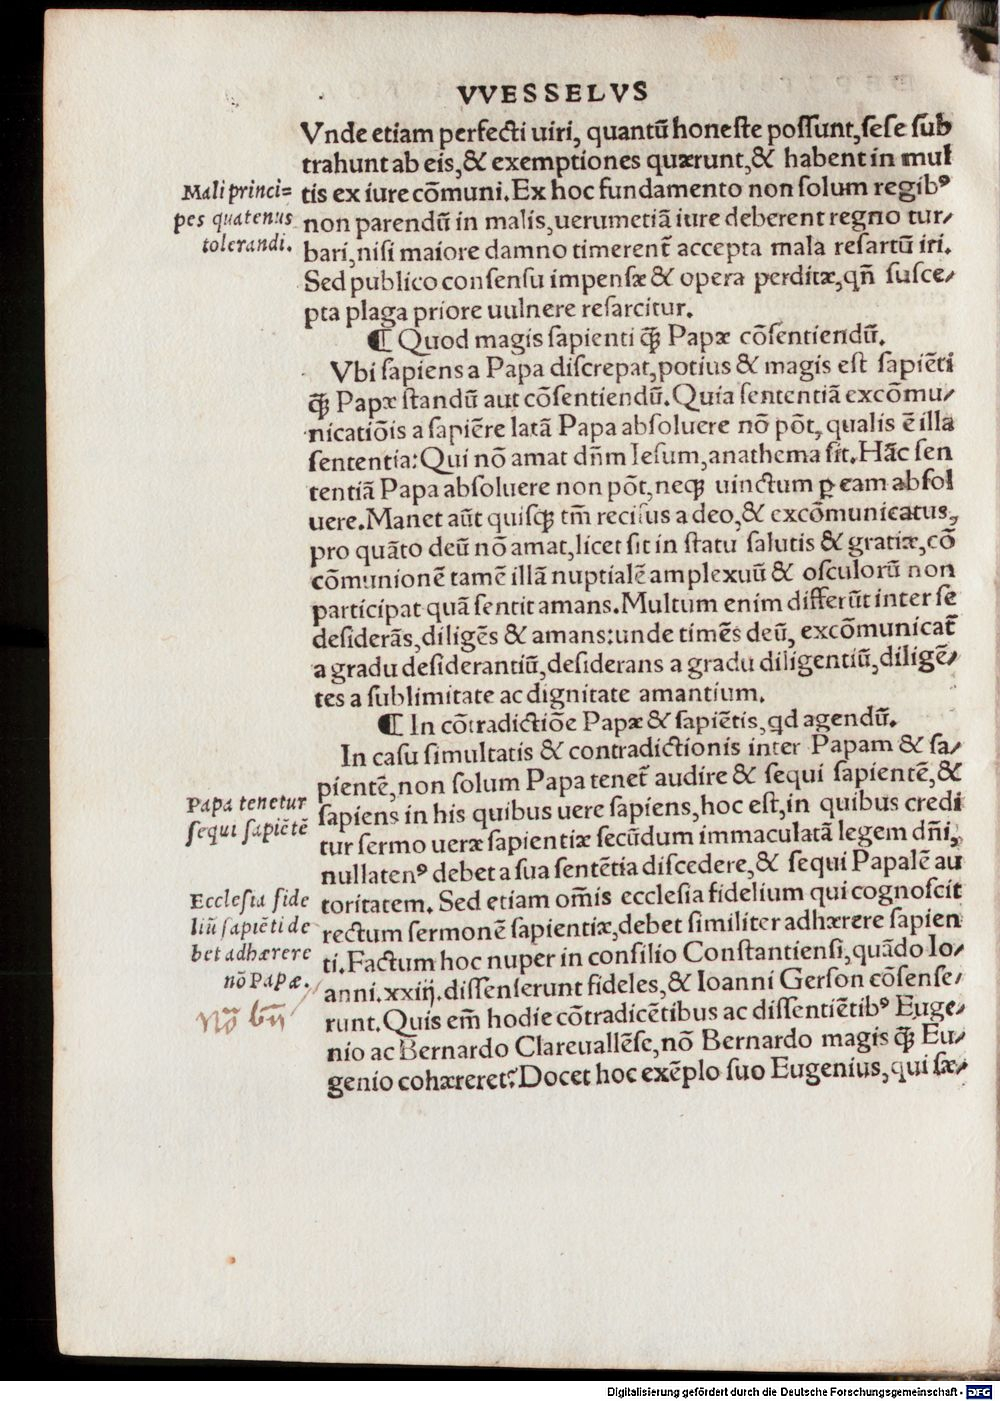 VVESSELVS
Vnde etiam perfecti uiri, quantũ honeſte poſſunt, ſeſe ſub
trahunt ab eis, & exemptiones quærunt, & habent in mul
tis ex iure cõmuni. Ex hoc fundamento non ſolum regibꝰ
non parendũ in malis, uerumetiã iure deberent regno tur⸗
bari, niſi maiore damno timerent̃ accepta mala reſartũ iri.
Sed publico conſenſu impenſæ & opera perditæ, qñ ſuſce⸗
pta plaga priore uulnere reſarcitur.
Mali princi=
pes quatenus
tolerandi.
¶ Quod magis ſapienti q̃ꝫ Papæ cõſentiendũ.
Vbi ſapiens a Papa diſcrepat, potius & magis eſt ſapiẽti
q̃ꝫ Papæ ſtandũ aut cõſentiendũ. Quia ſententiã excõmu⸗
nicatiõis a ſapiẽre latã Papa abſoluere nõ põt, qualis ẽ illa
ſententia: Qui nõ amat dñm Ieſum, anathema ſit. Hãc ſen
tentiã Papa abſoluere non põt, neqꝫ uinctum ꝑ eam abſol
uere. Manet aũt quiſqꝫ tm̃ reciſus a deo, & excõmunicatus,
pro quãto deũ nõ amat, licet ſit in ſtatu ſalutis & gratiæ, cõ
cõmunionẽ tamẽ illã nuptialẽ amplexuũ & oſculorũ non
participat quã ſentit amans. Multum enim differũt inter ſe
deſiderãs, diligẽs & amans: unde timẽs deũ, excõmunicat̃
a gradu deſiderantiũ, deſiderans a gradu diligentiũ, diligẽ⸗
tes a ſublimitate ac dignitate amantium.
¶ In cõtradictiõe Papæ & ſapiẽtis, qd agendũ.
In caſu ſimultatis & contradictionis inter Papam & ſa⸗
pientẽ, non ſolum Papa tenet̃ audire & ſequi ſapientẽ, &
ſapiens in his quibus uere ſapiens, hoc eſt, in quibus credi
tur ſermo ueræ ſapientiæ ſecũdum immaculatã legem dñi,
nullatenꝰ debet a ſua ſentẽtia diſcedere, & ſequi Papalẽ au
toritatem. Sed etiam om̃is eccleſia fidelium qui cognoſcit
rectum ſermonẽ ſapientiæ, debet ſimiliter adhærere ſapien
ti. Factum hoc nuper in conſilio Conſtantienſi, quãdo Io⸗
anni. xxiij. diſſenſerunt fideles, & Ioanni Gerſon cõſenſe⸗
runt. Quis em̃ hodie cõtradicẽtibus ac diſſentiẽtibꝰ Euge⸗
nio ac Bernardo Clareuallẽſe, nõ Bernardo magis q̃ꝫ Eu⸗
genio cohæreret? Docet hoc exẽplo ſuo Eugenius, qui ſæ⸗
Papa tenetur
ſequi ſapiẽtẽ
Eccleſia fide
liũ ſapiẽti de
bet adhærere
nõ Papæ.
Digitalisierung gefördert durch die Deutsche Forschungsgemeinschaft - DFG